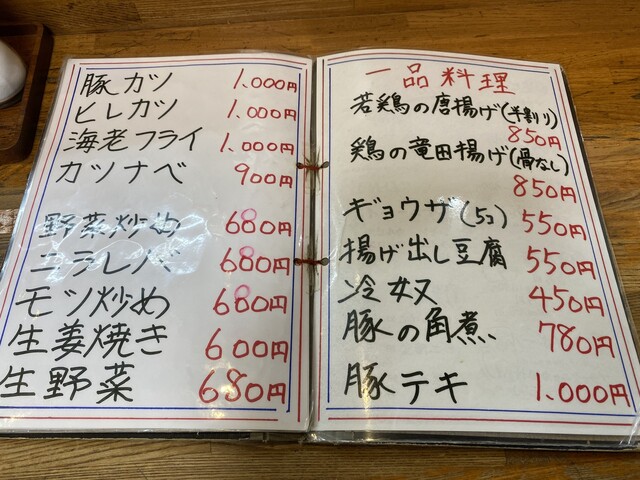 豚カツ 1,000円
ヒレカツ 1,000円
海老フライ 1,000円
カツナベ 900円
野菜炒め 680円
ニラレバ 680円
モツ炒め 680円
生姜焼き 600円
生野菜 680円
一品料理
若鶏の唐揚げ(半割り)
850円
鶏の竜田揚げ(骨なし)
850円
ギョウザ(5コ) 550円
揚げ出し豆腐 550円
冷奴 450円
豚の角煮 780円
豚テキ 1,000円